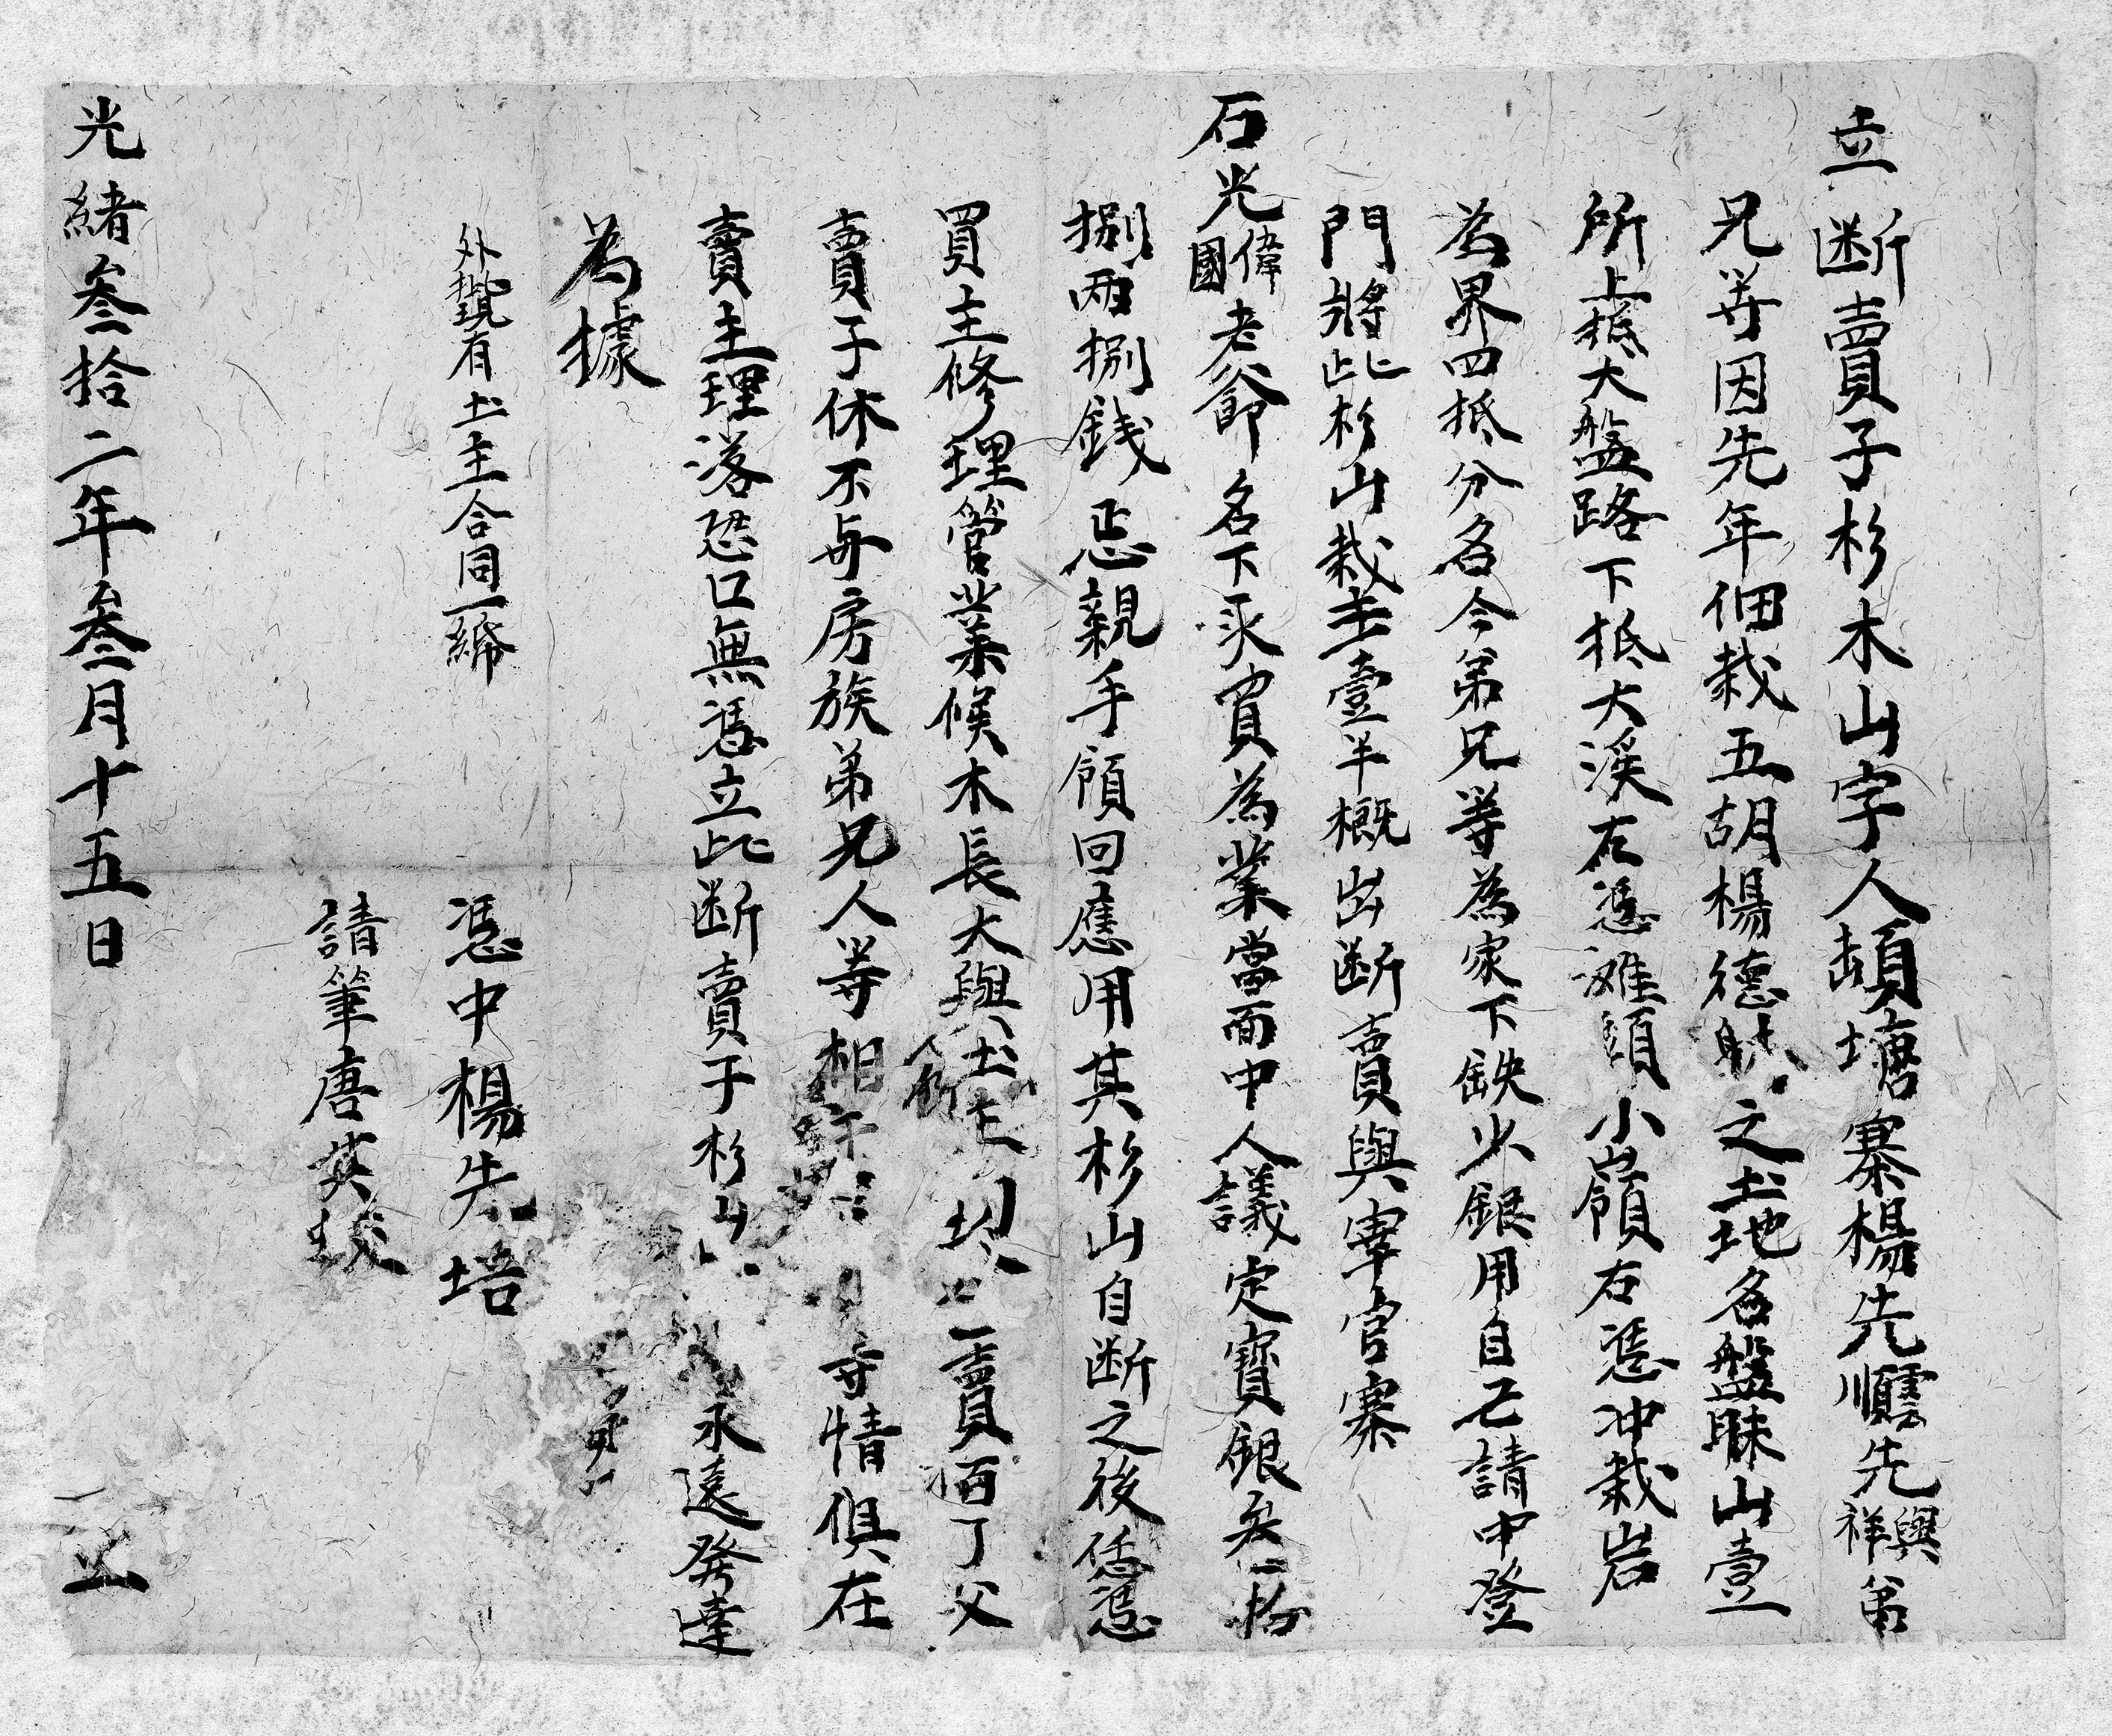 立斷賣子杉木山字人頡塘寨楊先順雲先祥興弟
兄等因先年佃栽五胡楊德財之土地名盤昧山壹
所上抵大盤路下抵大溪左憑滩頭小嶺右憑冲栽岩
為界四抵分名今弟兄等為家下缺少銀用自己請中登
門將此杉山栽主壹半概出斷賣與宰官寨
石光偉國老爺名下承買為業當面中人議定寳銀叁拾
捌兩捌錢正親手領回應用其杉山自斷之後恁憑
買主修理管業候木長大與土主
人
一賣百了父
賣子休不與房族弟兄人等相干
等情俱在
賣主理落恐口無憑立此斷賣子杉山
永遠發達
為據
外批現有土主合同一紙
憑中楊先培
請筆唐英
光緒叁拾二年叁月十五日 立